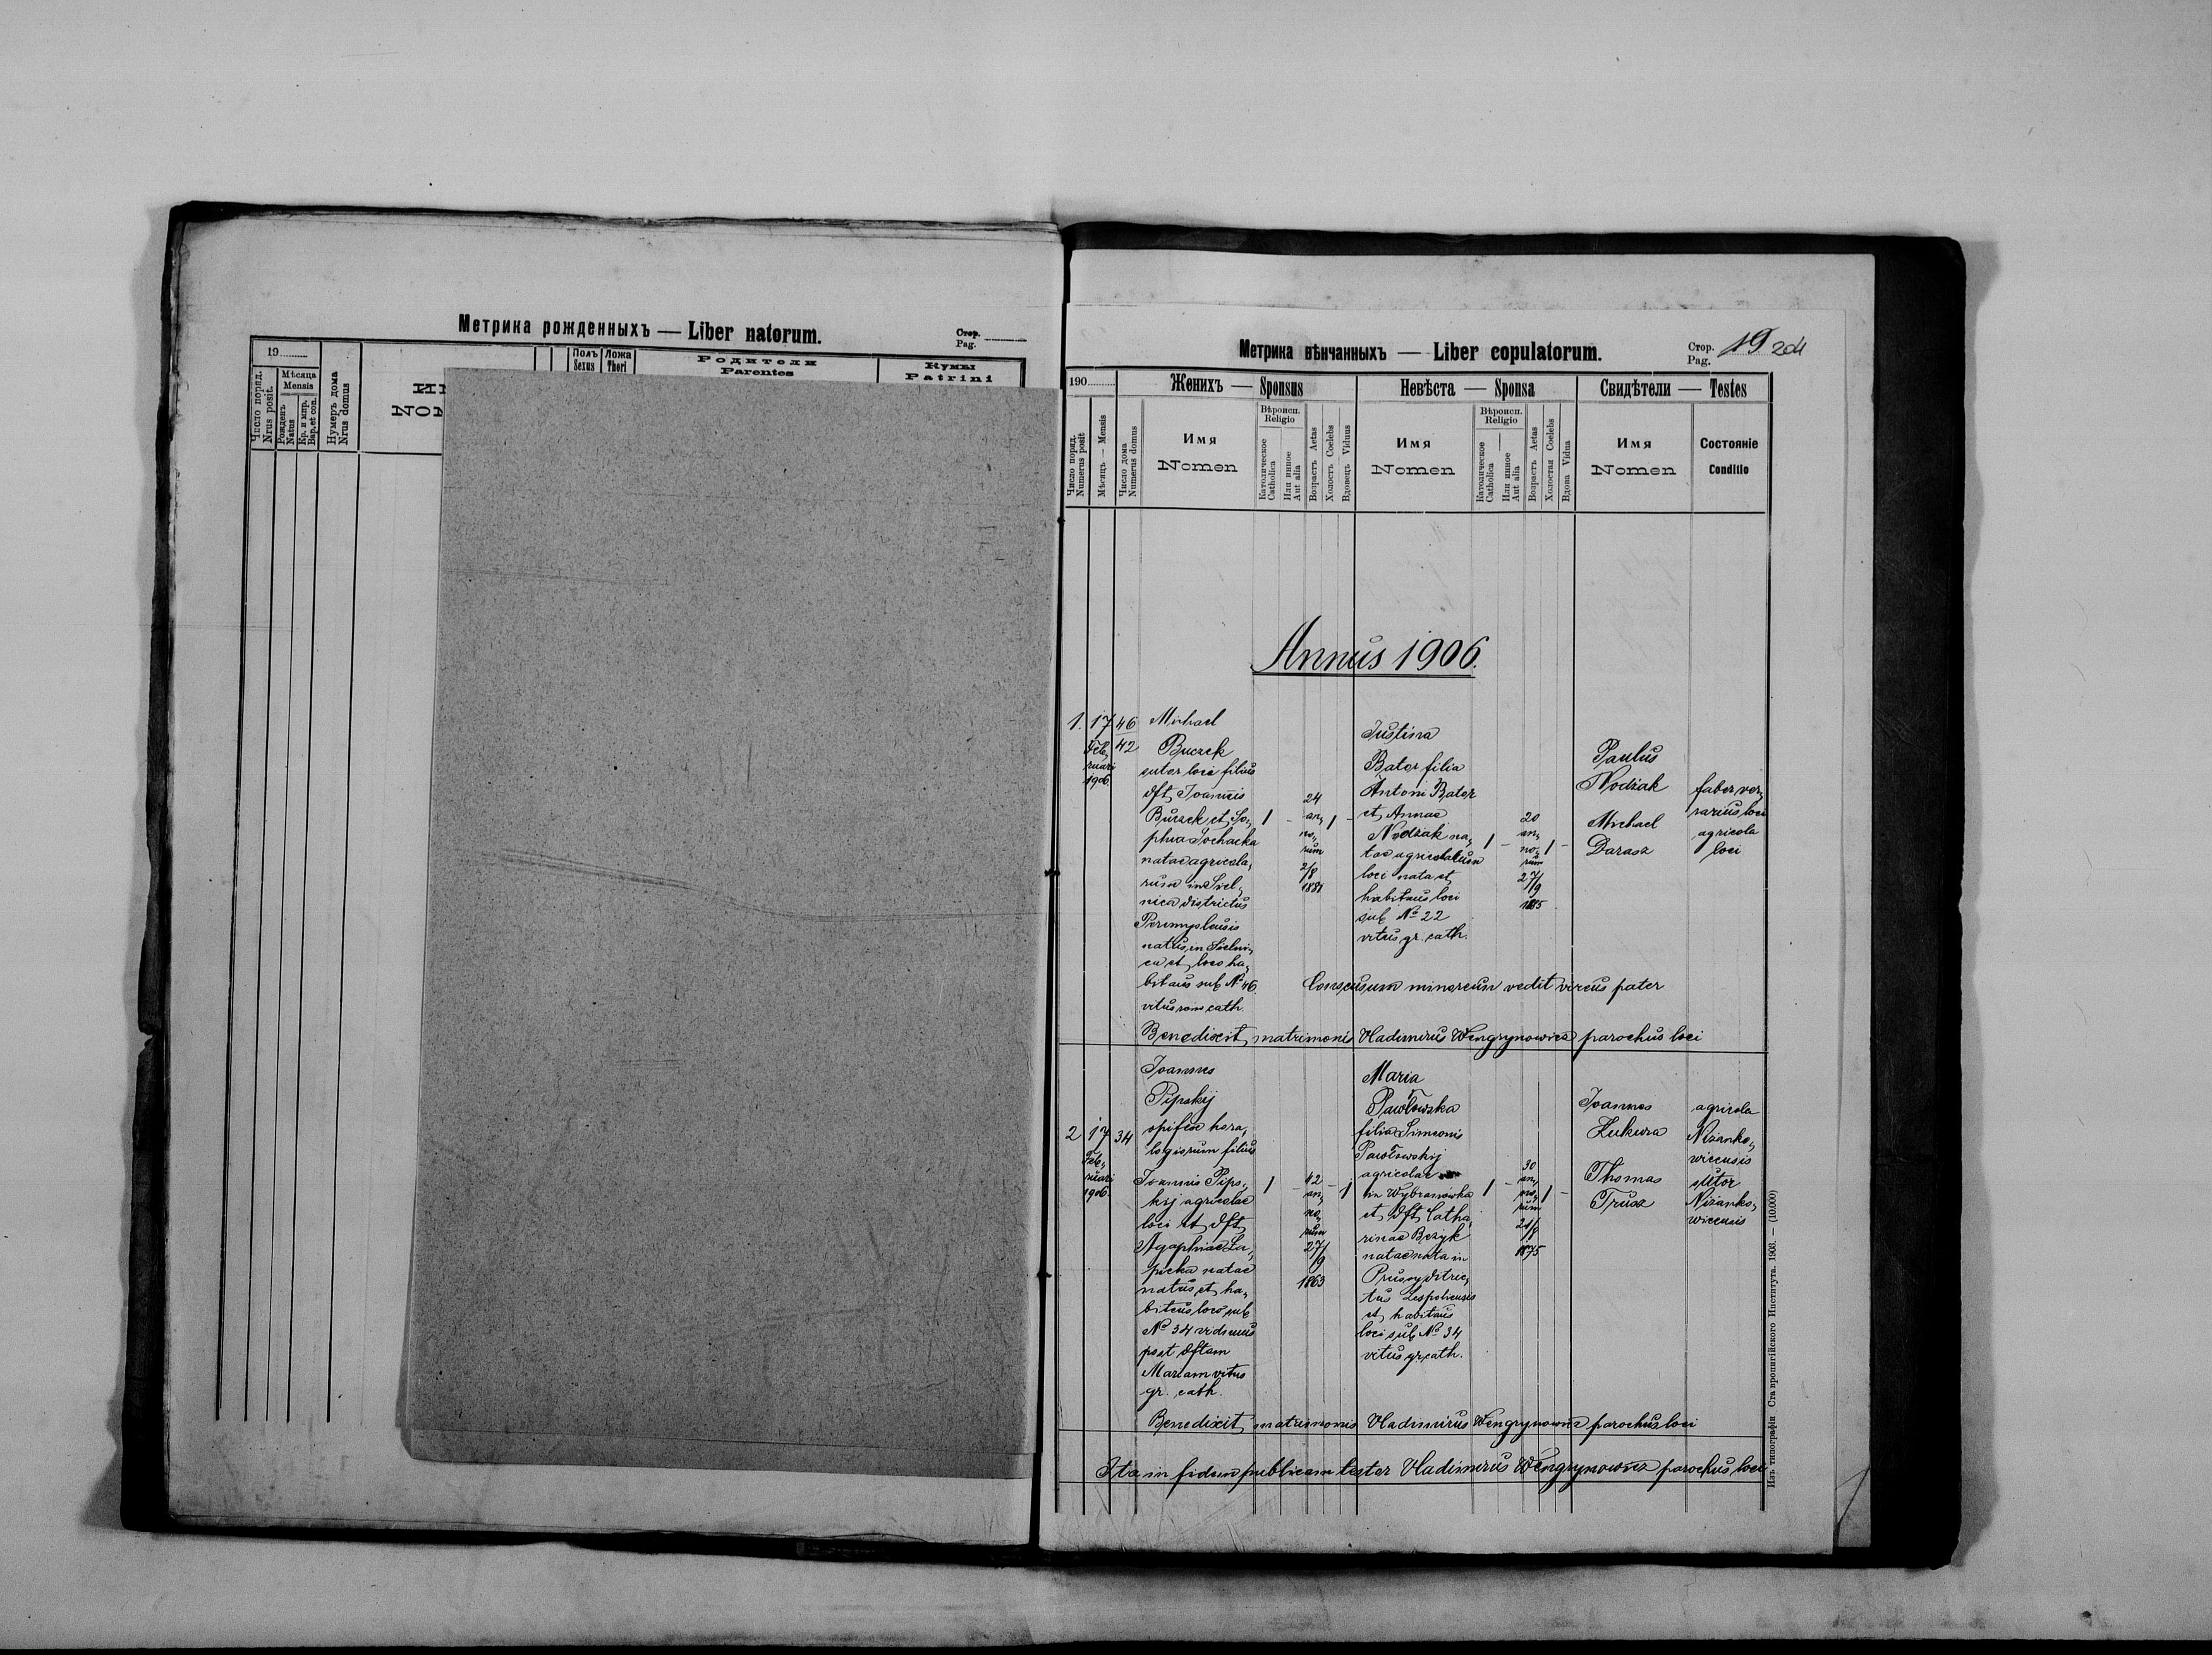 Метрика рожденныхъ — Liber natorum.
Стор.
Pag.
19
Число поряд.
Nrus posit.
Мѣсяца
Mensis
Рожденъ
Natus
Кр. и мир.
Bap. et con.
Нумеръ дома
Nrus domus
Полъ
Sexus
Ложа
Thori
Родители
Parentes
Кумы
Patrini
Метрика вѣнчанныхъ — Liber copulatorum.
Стор.
Pag.
19 204
190
Женихъ — Sponsus
Невѣста — Sponsa
Свидѣтели — Testes
Число поряд.
Numerus posit
Мѣсяцъ — Mensis
Число дома
Numerus domus
Имя
Nomen
Вѣроисп.
Religio
Католическое
Catholica
Или инное
Aut alia
Возрастъ Aetas
Холостъ Coelebs
Вдовецъ Viduus
Имя
Nomen
Вѣроисп.
Religio
Католическое
Catholica
Или инное
Aut alia
Возрастъ Aetas
Холостая Coelebs
Вдова Vidua
Имя
Nomen
Состояніе
Conditio
Annus 1906.
1.
17
Feb„
ruari
1906.
46
42
Michael
Buczek
sutor loci filius
dft Joannis
Buczek et So„
phia Sochacka
natae agricola„
rum in Siel„
nica districtus
Peremysleusis
natus in Sielni„
ca et loco ha„
bitans sub № 46.
ritus rom cath.
1 –
24
an„
no„
rum
2/8
1881
1 –
Justina
Bator filia
Antoni Bator
et Annae
Nodzak na„
tae agricolarum
loci nata et
habitans loci
sub № 22
ritus gr. cath.
1 –
20
an„
no„
rum
27/9
1885
1 –
Paulus
Nodzak
Michael
Darasz
faber fer„
rarius loci
agricola
loci
Consensum minoreum dedit pater
Benedixit matrimonis Vladimirus Wengrynowicz parochus loci
2
17
Feb„
ruari
1906.
34
Joannes
Pipskij
opifex hora„
logiorum filius
Joannis Pips„
kij agricolae
loci et dft
Agaphiae La„
picka natae
natus et ha„
bitans loco sub
№ 34 viduus
post dftam
Mariam ritus
gr. cath.
1 –
42
an„
no„
rum
27/9
1863
– 1
Maria
Pawłowska
filia Simeonis
Pawłowskij
agricolae
in Wybranówka
et dft Catha„
rinae Bezyk
natae nata in
Prusy distric„
tus Leopoliensis
et habitans
loci sub № 34
ritus gr. cath.
1 –
30
an„
no„
rum
21/8
1875
1 –
Joannes
Zukura
Thomas
Trusz
agricola
Nizanko„
wicensis
sutor
Nizanko„
wicensis
Benedixit matrimonis Vladimirus Wengrynowicz parochus loci
Ita in fidem publicam testor Vladimirus Wengrynowicz parochus loci
Изъ типографіи Ставропигійского Института. 1903. — (10.000)